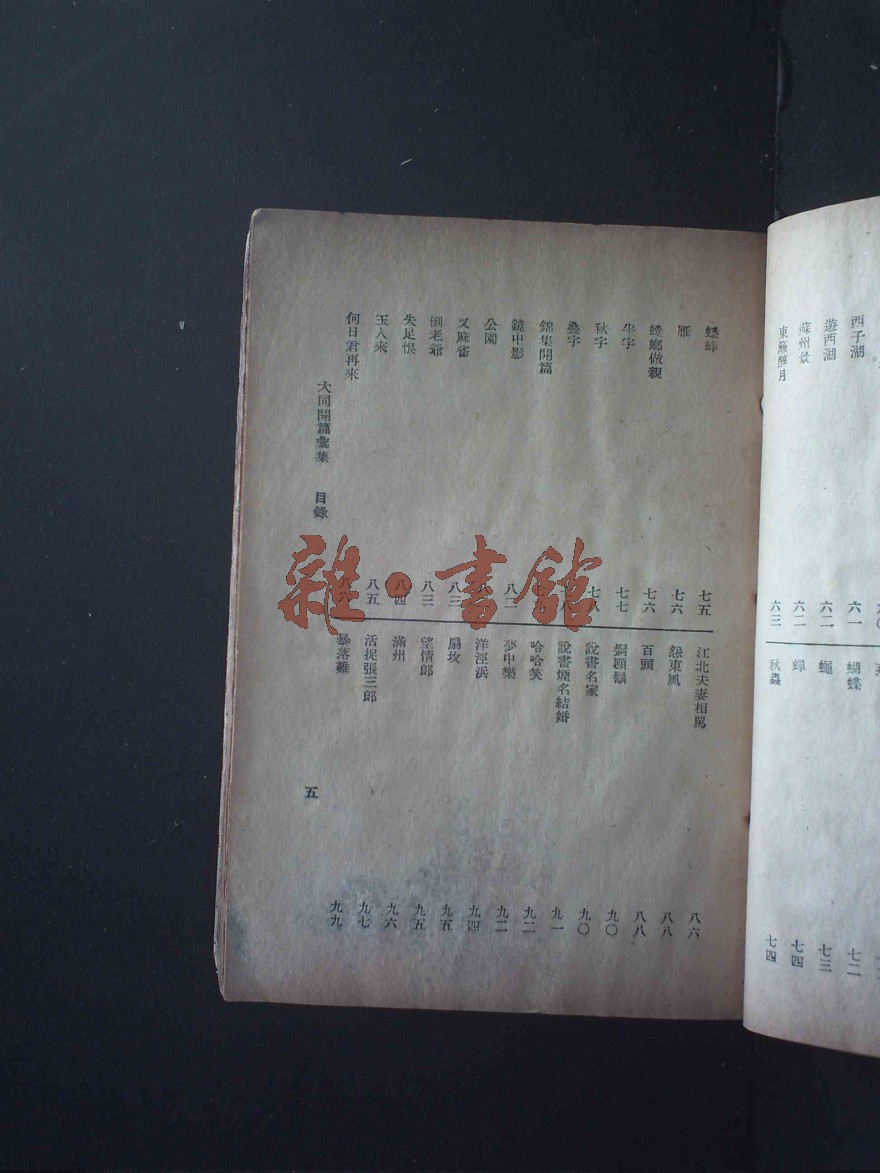 西子湖 六一
遊西湖 六二
蘇州景 六二
東籬醉月 六三
蝴蝶 七二
蠅 七三
蟬 七四
秋蟲 七四
蟋蟀 七五
雁 七六
做親 七六
字 七七
秋字 七八
疊字
錦集開篇
鏡中影 八二
公園
叉麻雀 八三
倒老爺 八三
失足恨 八四
玉人來 八五
何日君再來 八六
江北夫妻相罵 八六
怨東風 八八
百頭 八八
九〇
說書名家 九〇
說書煙名結婚 九一
哈哈笑 九二
夢中樂 九二
洋涇浜 九四
扇坟 九五
望情郎 九五
滿州 九六
活捉張三郎 九七
暴落難 九九
大同開篇彙集 目錄
五
雜·書館